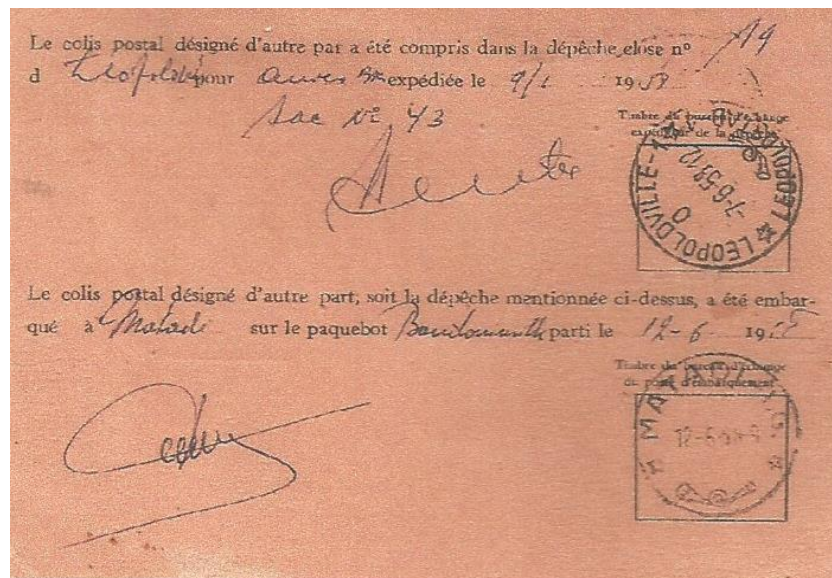 Le colis postal désigné d'autre par a été compris dans la dépêche close nº 19
d Léopoldv pour expédiée le 9/6 1958
Sac Nº 43
Timbre du bureau d'échange
expéditeur de la dépêche
LEOPOLDVILLE
7-6-58-12
Le colis postal désigné d'autre part, soit la dépêche mentionnée ci-dessus, a été embar-
qué à Matadi sur le paquebot Baudouinville parti le 12-6 19
Timbre du bureau d'échange
du point d'embarquement
MATADI
12-6